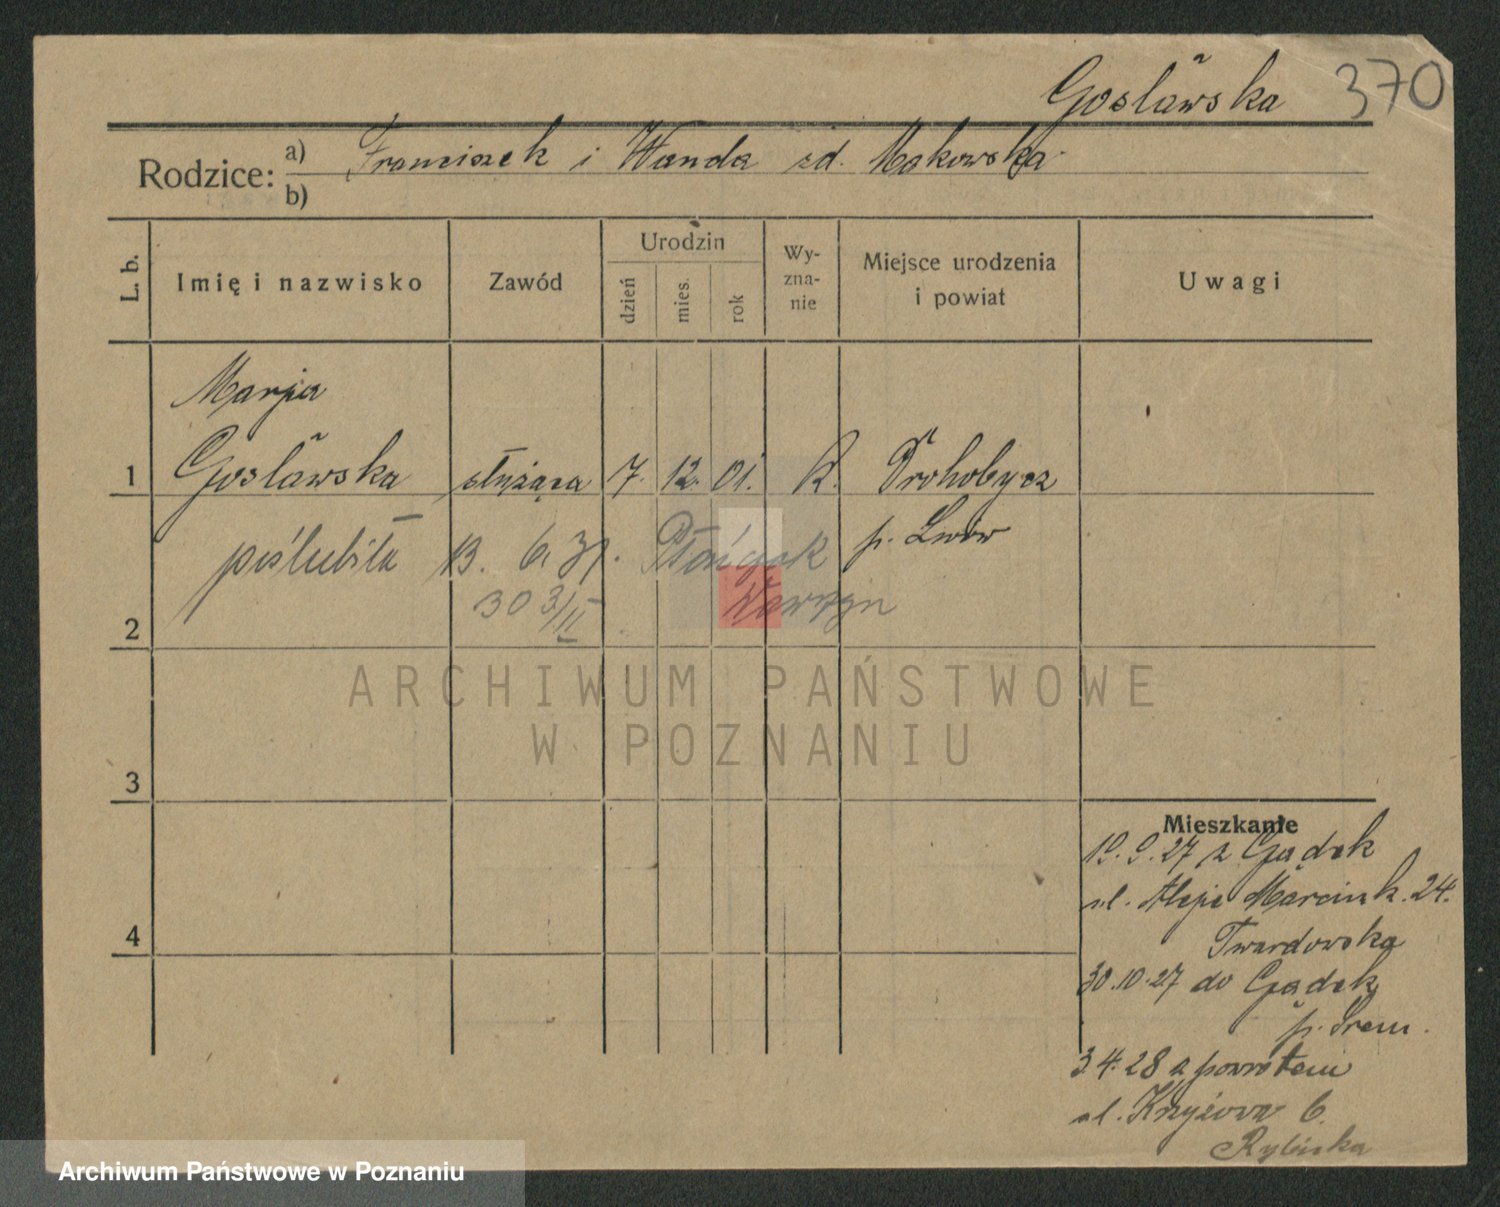 Gosławska 370
Rodzice: a) Franciszek i Wanda zd. Makowska
b)
L. b. Imię i nazwisko Zawód Urodzin dzień mies. rok Wy-zna-nie Miejsce urodzenia i powiat Uwagi
Marja
1 Gosławska służąca 7. 12. 01. R. Drohobycz
poślubiła 13. 6. 31. p. Lwów
30 3/II Wawrzyn
2
3
4
Mieszkanie
19.9.27 z Gądek
ul. Aleje Marcink. 24.
Twardowska
30.10.27 do Gądek
p. Śrem.
3 4. 28 z powrotem
ul. Krzyżowa 6.
Rybicka
ARCHIWUM PAŃSTWOWE
W POZNANIU
Archiwum Państwowe w Poznaniu